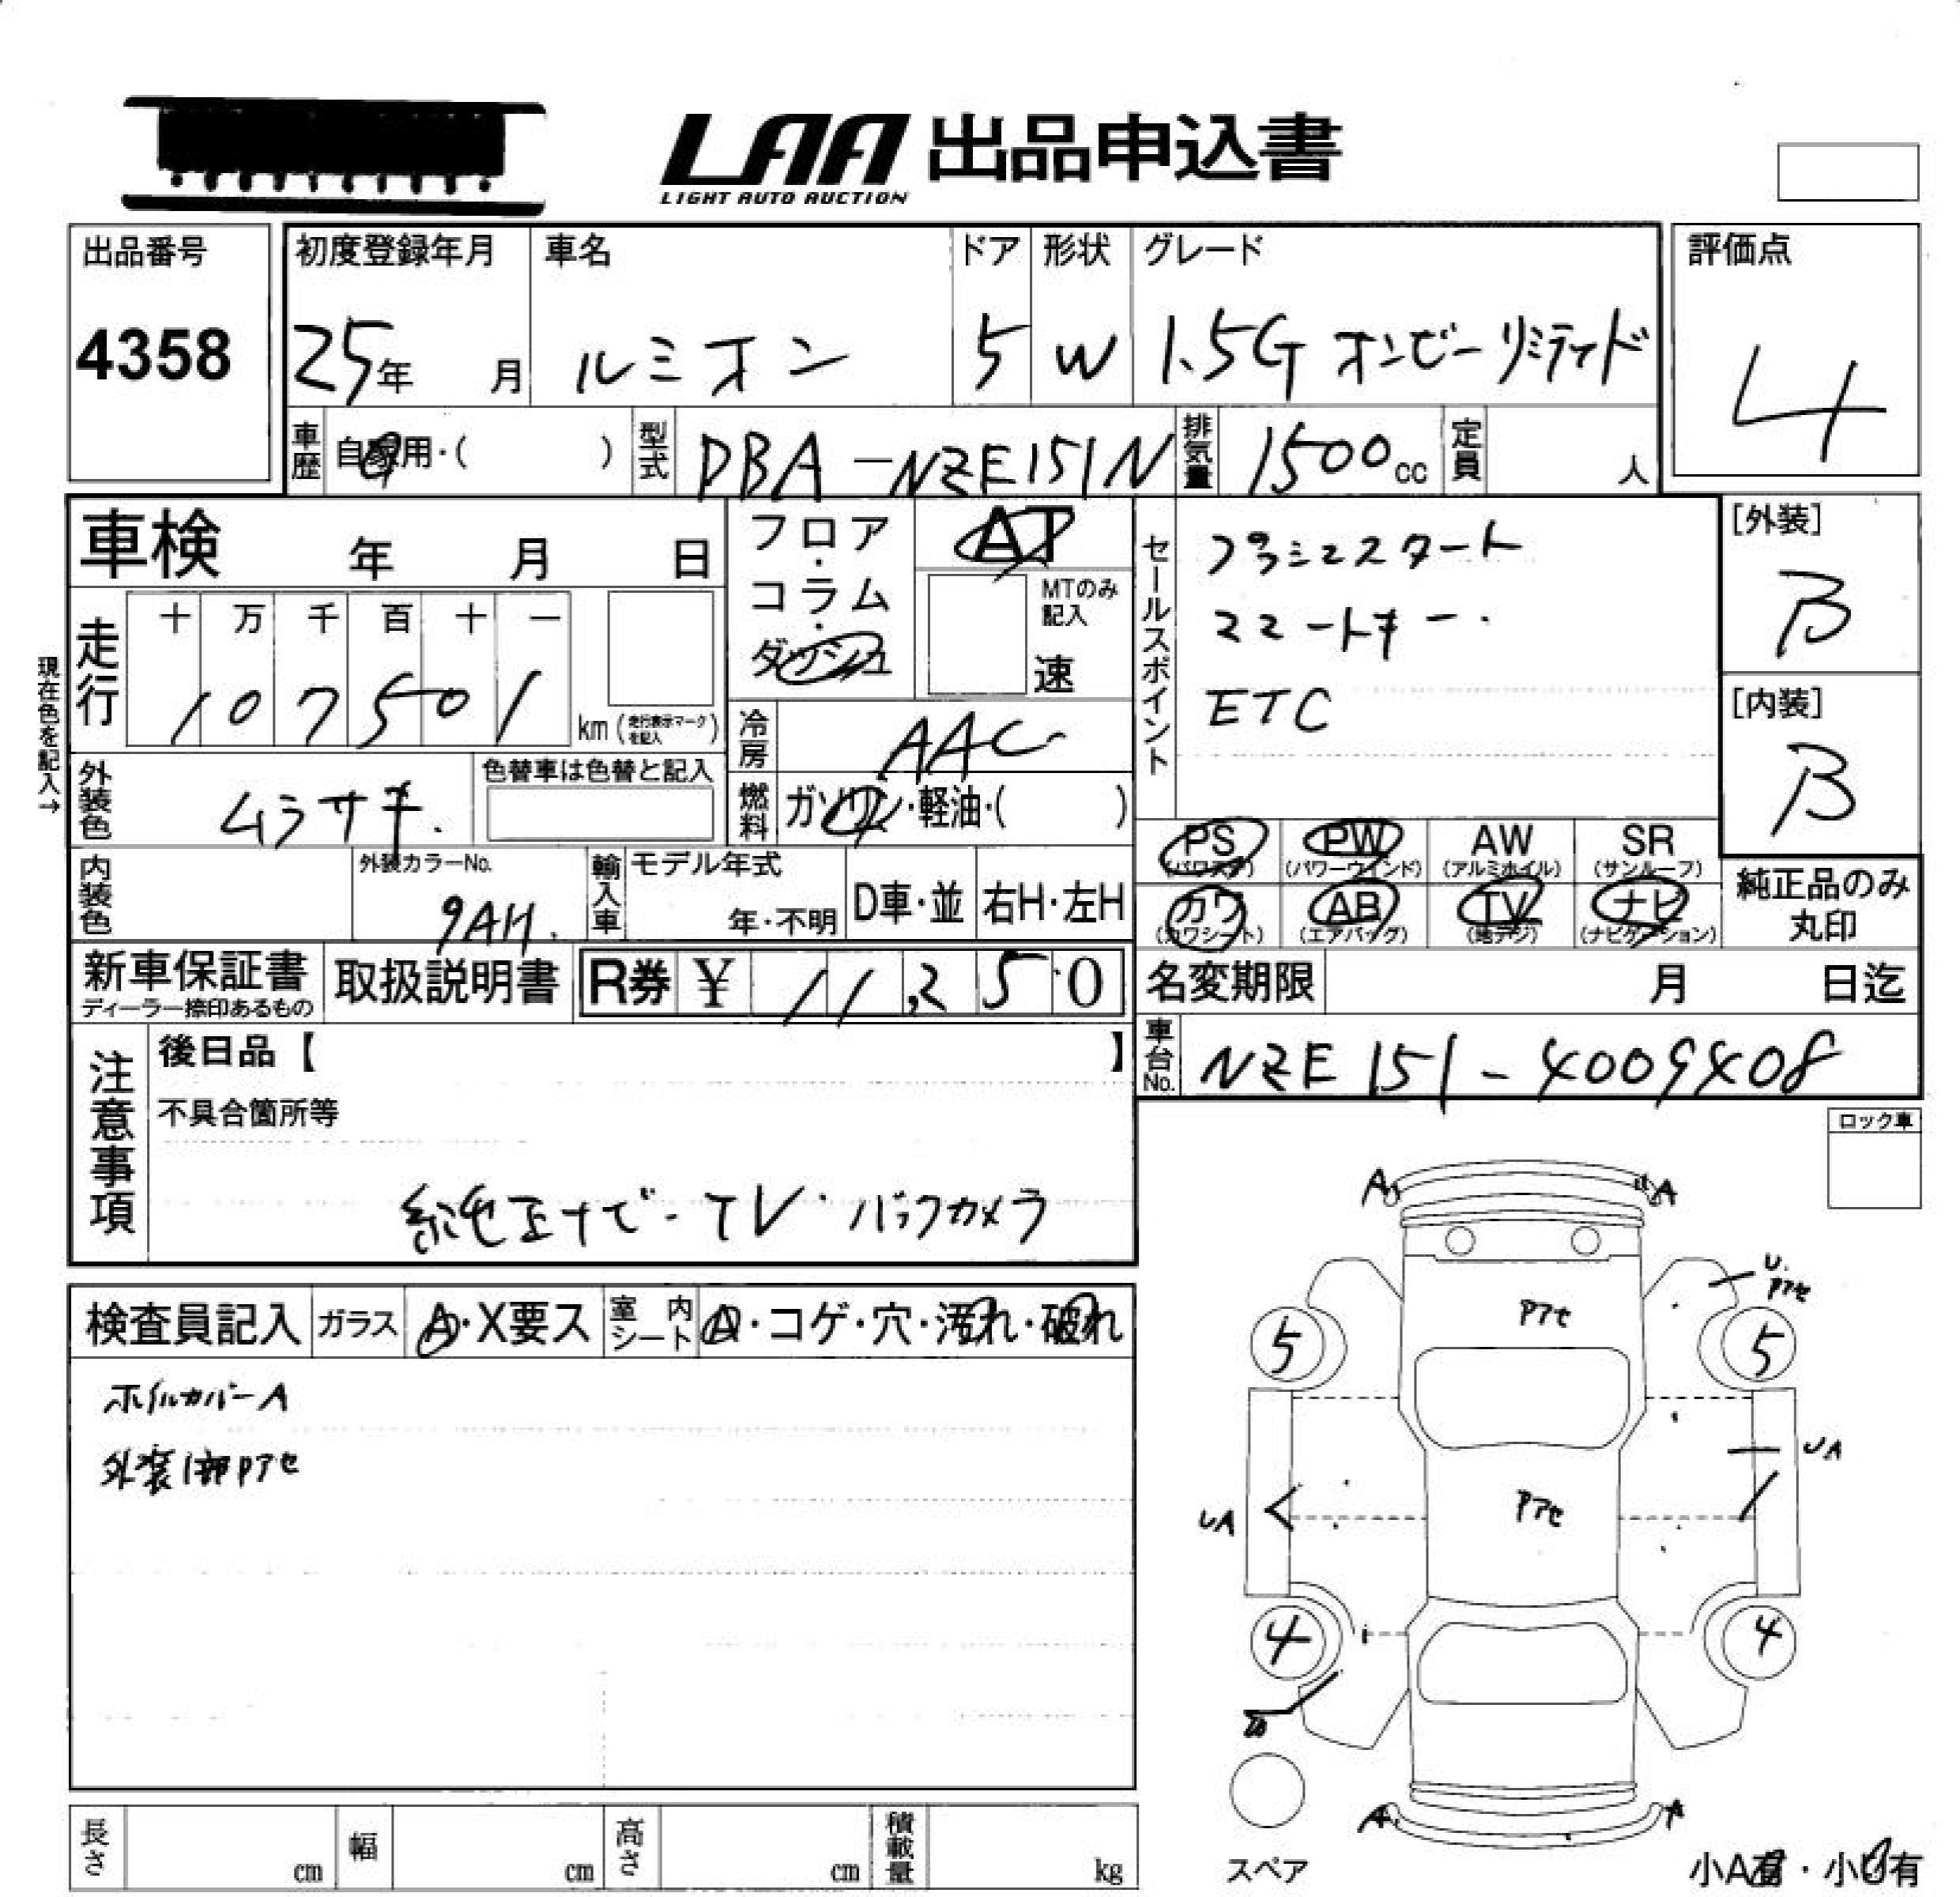 LAA 出品申込書
LIGHT AUTO AUCTION
出品番号
4358
初度登録年月
25年 月
車名
ルミオン
ドア
5
形状
W
グレード
1.5G オンビーリミティド
評価点
4
車歴 自家用・( )
型式 DBA-NZE151N
排気量 1500cc
定員 人
車検 年 月 日
フロア・コラム・ダッシュ
AT
MTのみ記入
速
セールスポイント
プッシュスタート
スマートキー.
ETC
[外装]
B
[内装]
B
現在色を記入→
走行
十 万 千 百 十 一
1 0 7 5 0 1
km (走行表示マークを記入)
冷房 AAC
外装色 ムラサキ.
色替車は色替と記入
燃料 ガソリン・軽油・( )
PS (パワステ)
PW (パワーウインド)
AW (アルミホイル)
SR (サンルーフ)
カワ (カワシート)
AB (エアバッグ)
TV (地デジ)
ナビ (ナビゲーション)
純正品のみ丸印
内装色
外装カラーNo.
9AH.
輸入車
モデル年式
年・不明
D車・並
右H・左H
新車保証書
ディーラー捺印あるもの
取扱説明書
R券 ¥ 11,250
名変期限 月 日迄
車台No. NZE151-4009408
注意事項
後日品【 】
不具合箇所等
純正ナビ-TV・バックカメラ
ロック車
検査員記入
ガラス A・X要ス
室内シート A・コゲ・穴・汚れ・破れ
ホイルカバーA
外装1部Pアセ
A
A
U.
Pアセ
Pアセ
5
5
UA
Pアセ
UA
4
4
A
A
スペア
小A有・小U有
長さ cm
幅 cm
高さ cm
積載量 kg